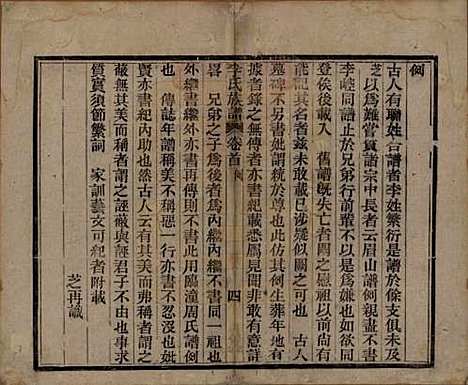 例
古人有聯姓合譜者李姓繁衍是譜於條支俱未及
芝以為難嘗質諸宗中長者云眉山譜例親盡不書
李崆同譜止於兄弟行前輩不以為嫌也如其可
登俟後載入 舊譜既失亡者可慰祖以前俱未
能記其名者茲未敢載已涉疑似關之可也 古人
墓碑不另書妣謂統於尊也此仿其例生葬年地有
據者錄之無傳者亦書紀載悉屬見聞非敢有意詳
畧 兄弟之子為後者為內繼內繼不書同一祖也
外繼亦書外亦書再傳則不書此用臨潼周氏譜例
也 傳誌年譜稱美不稱惡一行亦書不忍沒也妣
賢亦書紀內美也然古人有其美而弗稱者謂之
蔽無其美而稱之者謂之誣蔽與誣君子不由也事求
質實須節繁詞 家訓藝文可紀者附載
芝再識
李氏族譜 卷首 例 四